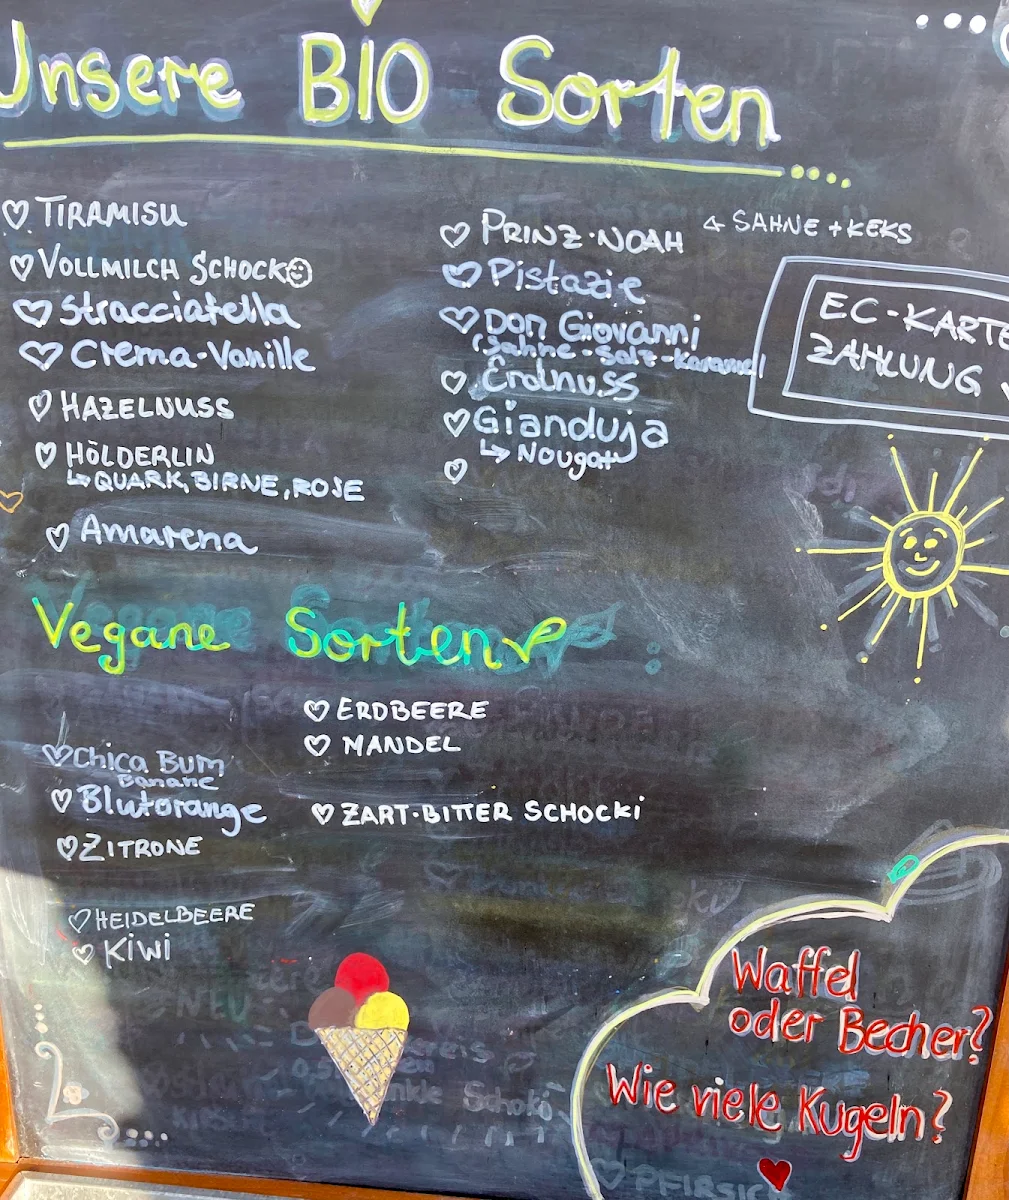 Unsere BIO Sorten
TIRAMISU
VOLLMILCH SCHOCK
Stracciatella
Crema-Vanille
HAZELNUSS
HÖLDERLIN
QUARK, BIRNE, ROSE
Amarena
PRINZ·NOAH SAHNE + KEKS
Pistazie
Don Giovanni
(Sahne-Salz-Karamel
Erdnuss
Gianduja
Nougat
EC-KARTE
ZAHLUNG
Vegane Sorten
Chica Bum
Banane
Blutorange
ZITRONE
HEIDELBEERE
KiWi
ERDBEERE
MANDEL
ZART·BITTER SCHOCKi
Waffel
oder Becher?
Wie viele Kugeln?